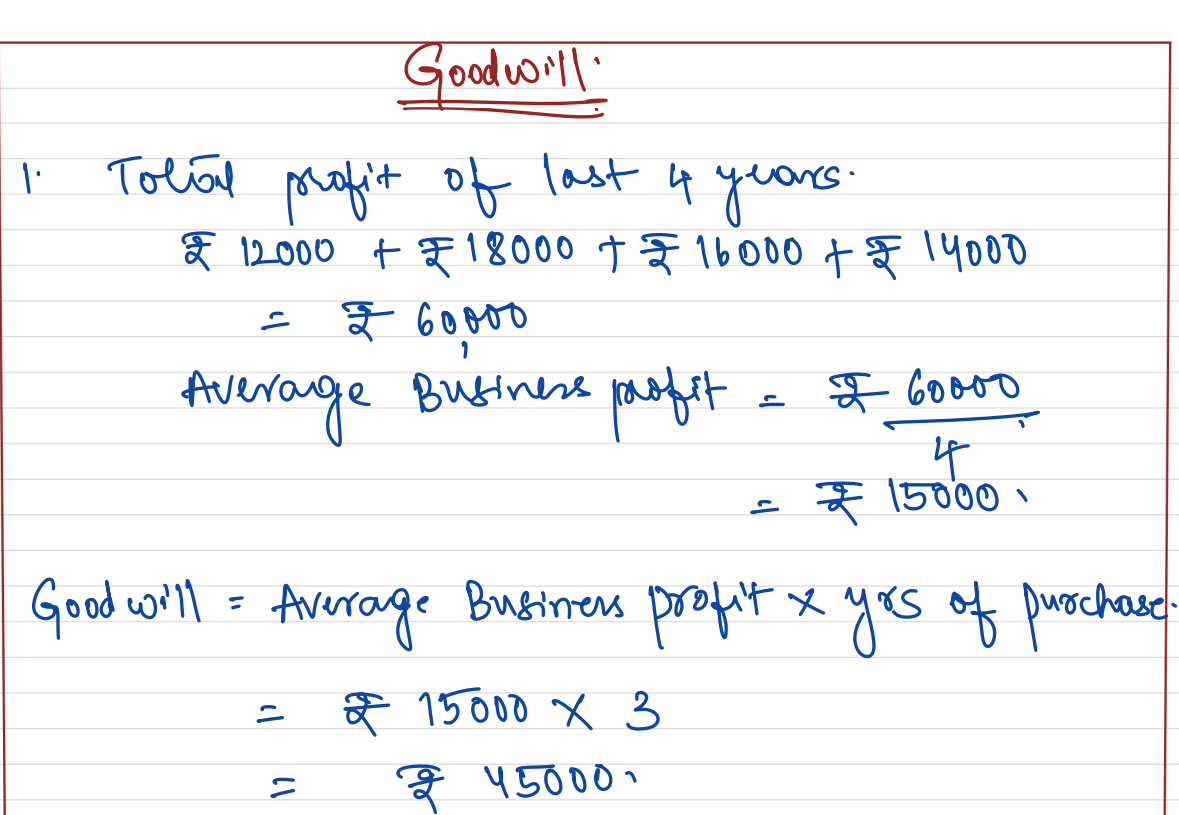 Goodwill.
1. Total profit of last 4 years.
₹ 12000 + ₹ 18000 + ₹ 16000 + ₹ 14000
= ₹ 60,000
Average Business profit = ₹ 60000
4
= ₹ 15000.
Goodwill = Average Business profit × yrs of purchase.
= ₹ 15000 × 3
= ₹ 45000.